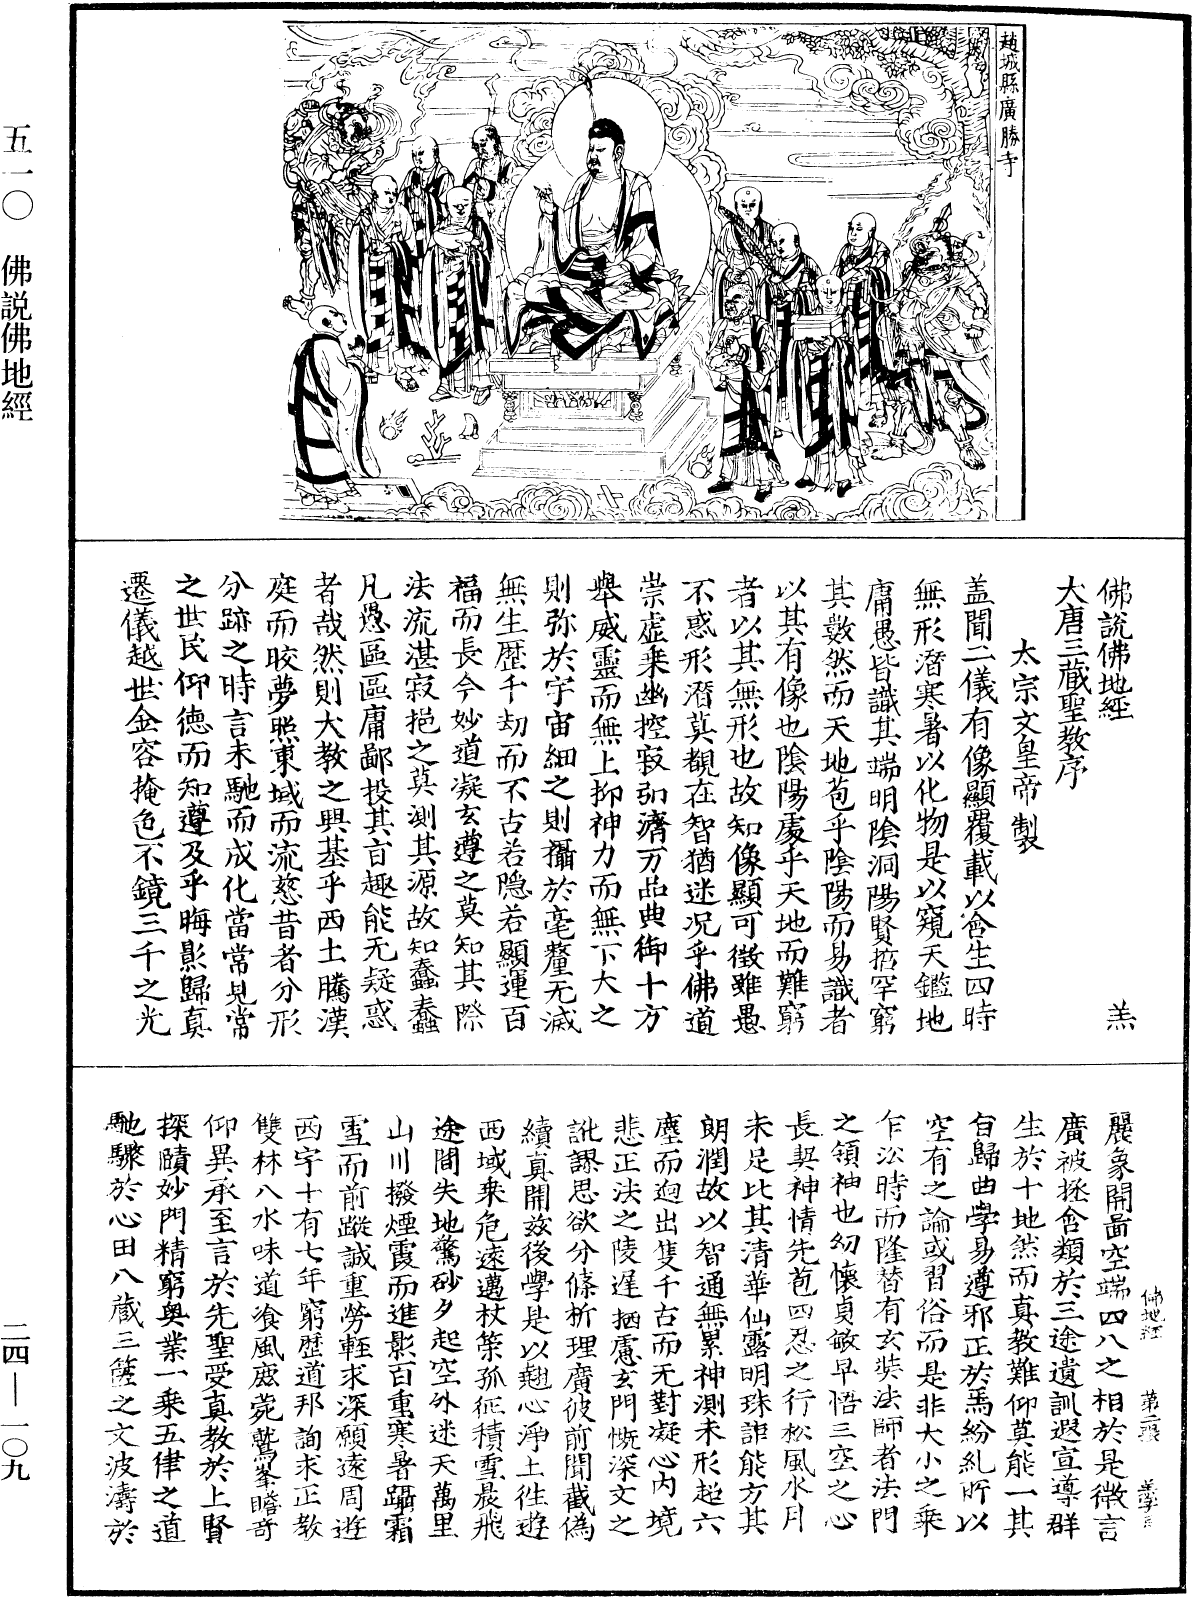 五一〇　佛説佛地經
二四—一〇九
趙城縣廣勝寺
佛說佛地經　羔
大唐三藏聖教序
太宗文皇帝製
盖聞二儀有像顯覆載以含生四時
無形潛寒暑以化物是以窺天鑑地
庸愚皆識其端明陰洞陽賢哲罕窮
其數然而天地苞乎陰陽而易識者
以其有像也陰陽處乎天地而難窮
者以其無形也故知像顯可徵雖愚
不惑形潛莫覩在智猶迷況乎佛道
崇虛乗幽控寂弘濟万品典御十方
舉威靈而無上抑神力而無下大之
則弥於宇宙細之則攝於毫釐无滅
無生歷千劫而不古若隱若顯運百
福而長今妙道凝玄遵之莫知其際
法流湛寂挹之莫測其源故知蠢蠢
凡愚區區庸鄙投其旨趣能无疑惑
者哉然則大教之興基乎西土騰漢
庭而皎夢照東域而流慈昔者分形
分跡之時言未馳而成化當常見常
之世民仰德而知遵及乎晦影歸真
遷儀越世金容掩色不鏡三千之光
麗象開啚空端四八之相於是微言
廣被拯含類於三途遺訓遐宣導群
生於十地然而真教難仰莫能一其
旨歸曲學易遵邪正於焉紛糺所以
空有之論或習俗而是非大小之乗
乍㳂時而隆替有玄奘法師者法門
之領袖也幼懷貞敏早悟三空之心
長契神情先苞四忍之行松風水月
未足比其清華仙露明珠詎能方其
朗潤故以智通無累神測未形超六
塵而迥出隻千古而无對凝心内境
悲正法之陵遲栖慮玄門慨深文之
訛謬思欲分條析理廣彼前聞截偽
續真開兹後學是以翹心淨土往遊
西域乗危遠邁杖策孤征積雪晨飛
途間失地驚砂夕起空外迷天萬里
山川撥煙霞而進影百重寒暑躡霜
雪而前蹤誠重勞輕求深願遠周遊
西宇十有七年窮歷道邦詢求正教
雙林八水味道飡風鹿菀鷲峯瞻奇
仰異承至言於先聖受真教於上賢
探賾妙門精窮奥業一乗五律之道
馳驟於心田八藏三篋之文波濤於
佛地經　第二張